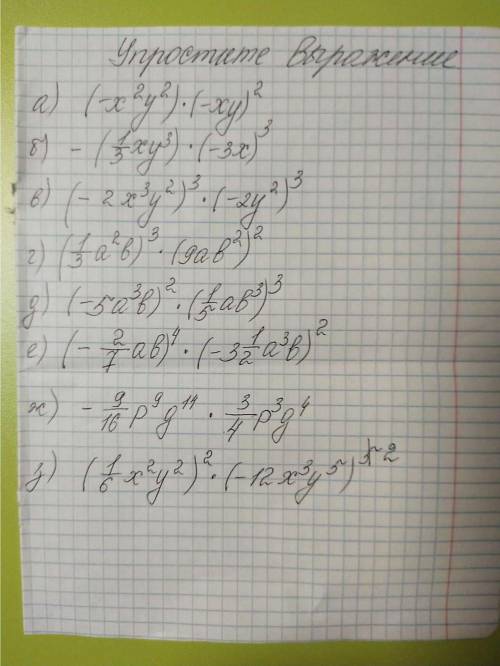 Упростите выражение
а) (-x²y²)·(-xy)²
б) -(1/3xy³)·(-3x)³
в) (-2x³y²)³·(-2y²)³
г) (1/3a²b)³·(9ab²)²
д) (-5a³b)²·(1/5ab³)³
е) (-2/7ab)⁴·(-3 1/2a³b)²
ж) -9/16p⁹g¹¹·3/4p³g⁴
з) (1/6x²y²)²·(-12x³y⁵)²